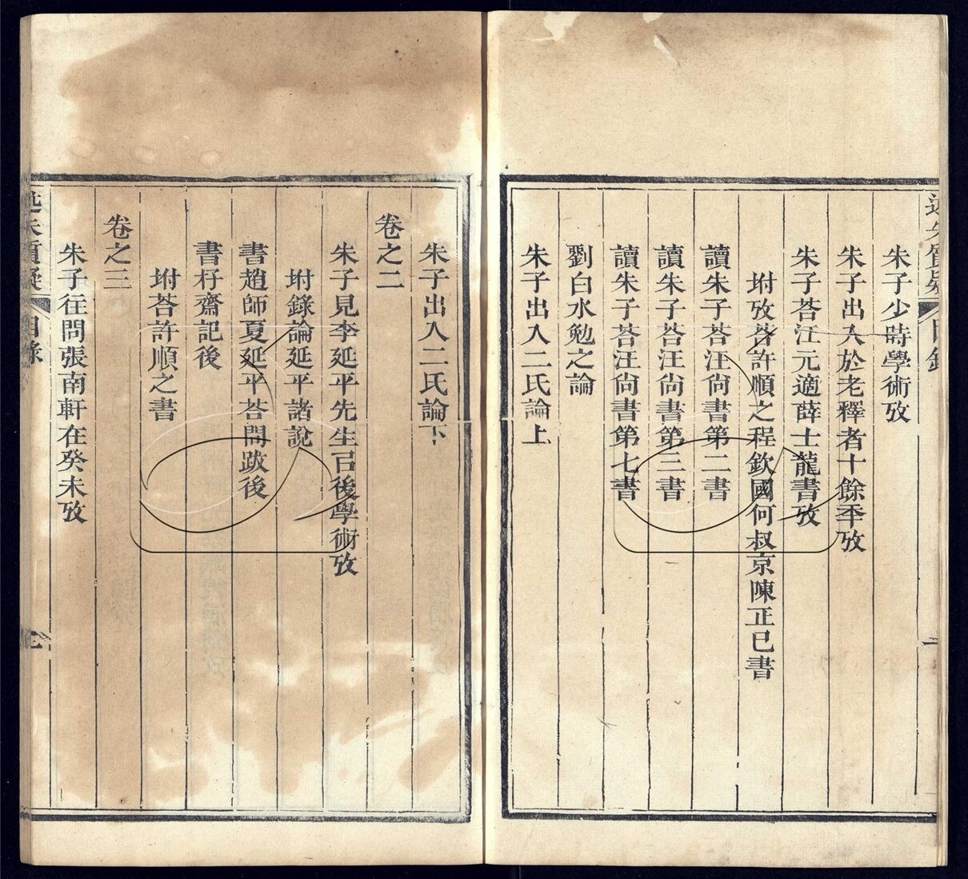 朱子少時學術攷
朱子出入於老釋者十餘年攷
朱子荅汪元適薛士龍書攷
坿攷荅許順之程欽國何叔京陳正己書
讀朱子荅汪尙書第二書
讀朱子荅汪尙書第三書
讀朱子荅汪尙書第七書
劉白水勉之論
朱子出入二氏論上
朱子出入二氏論下
卷之二
朱子見李延平先生㠯後學術攷
坿錄論延平諸說
書趙師夏延平荅問跋後
書杍齋記後
坿荅許順之書
卷之三
朱子往問張南軒在癸未攷
述朱質疑 目錄